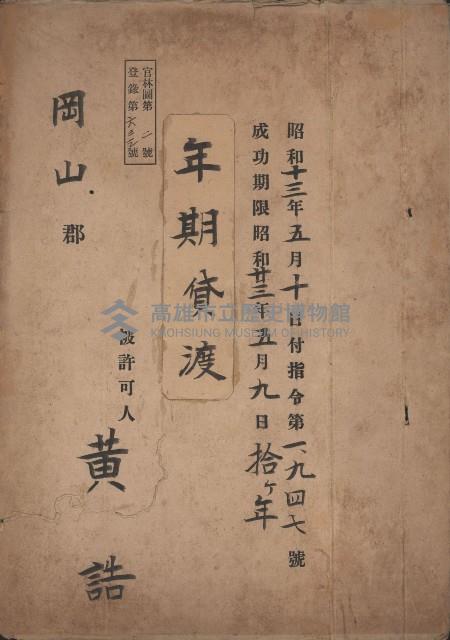 昭和十三年五月十日付指令第一、九四七號
成功期限昭和廿三年五月九日拾ヶ年
年期貸渡
官林圖第二號
登錄第六三三號
岡山郡
被許可人
黄誥
高雄市立歷史博物館
KAOHSIUNG MUSEUM OF HISTORY